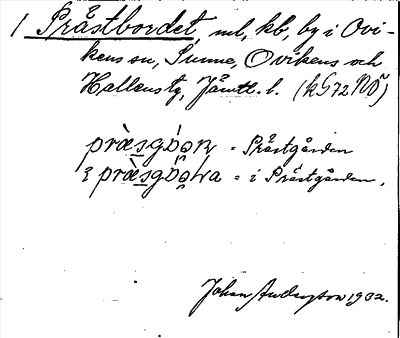 1 Prästbordet, ml, kb, by i Ovi-
kens sn, Sunne, Ovikens och
Hallens tg, Jämtl. l. (kG72NÖ)
= Prästgården
= i Prästgården.
Johan Anderson 1932.